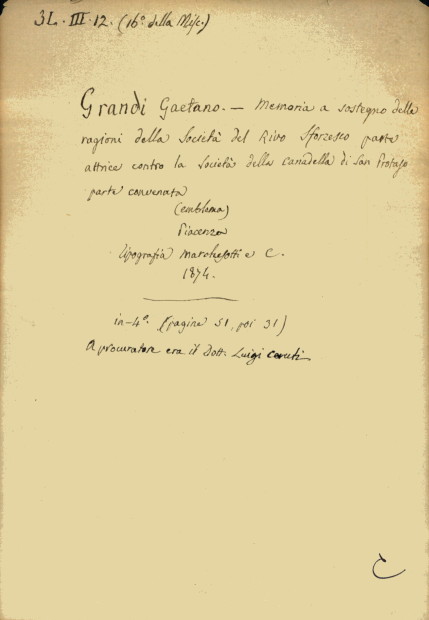 3L. III. 12. (16º della Misc.)
Grandi Gaetano. — Memoria a sostegno delle
ragioni della Società del Rivo Sforzesco parte
attrice contro la Società della Canadella di San Protaso
parte convenuta
(emblema)
Piacenza
Tipografia Marchesotti e C.
1874.
in-4º. (pagine 51, poi 31)
A procuratore era il Dott. Luigi Ceruti
C